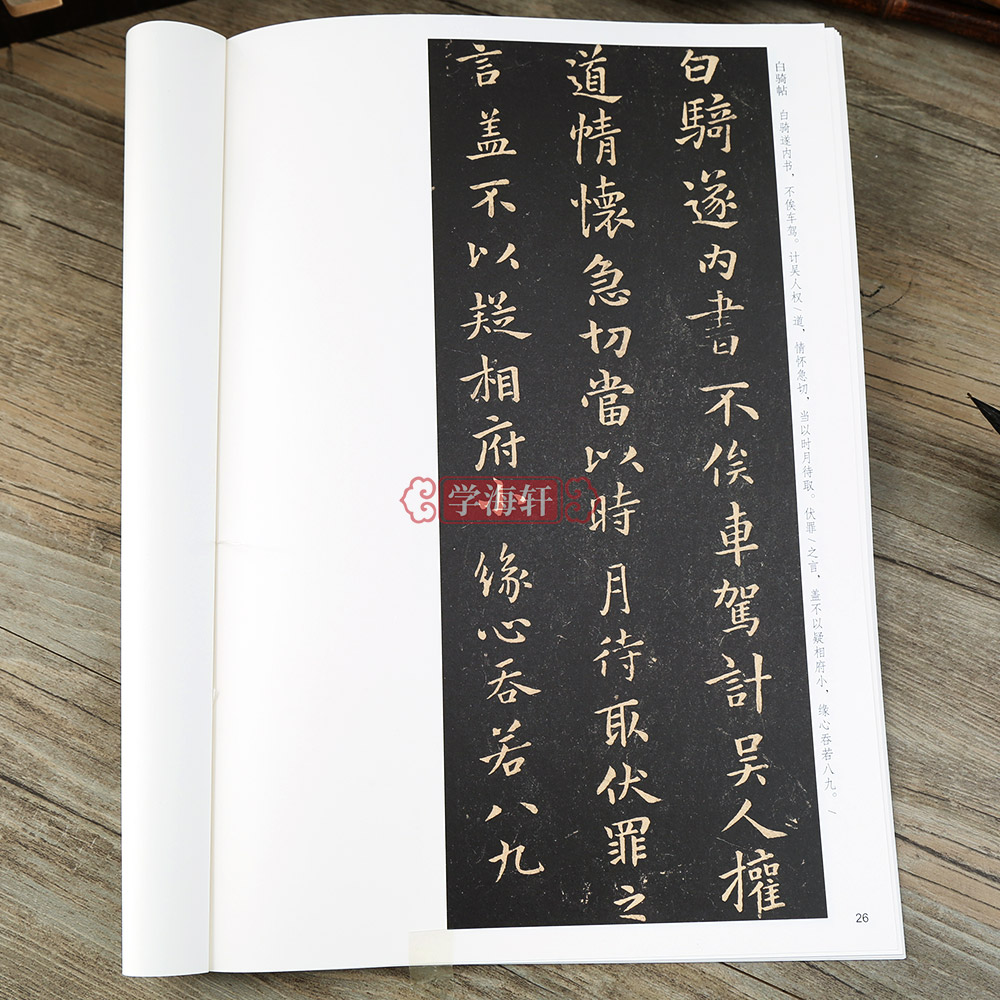 白騎遂内書不俟車駕計吴人權
道情懷急切當以時月待取伏罪之
言盖不以疑相府小緣心吞若八九
白骑帖 白骑遂内书，不俟车驾。计吴人权/道，情怀急切，当以时月待取。伏罪/之言，盖不以疑相府小，缘心吞若八九。/
学海轩
26